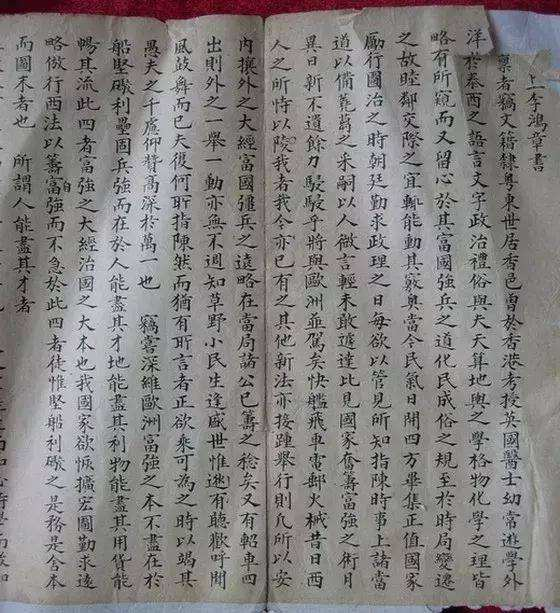 上李鴻章書
稟者竊文籍隸粵東世居香邑曾於香港考授英國醫士幼嘗遊學外
洋於泰西之語言文字政治禮俗與夫天算地輿之學格物化學之理皆
略有所窺而又留心於其富國強兵之道化民成俗之規至於時局變遷
之故睦鄰交際之宜輒能動其竅奧當今民氣日開四方畢集正值國家
勵行圖治之時朝廷勤求政理之日每欲以管見所知指陳時事上諸當
道以備蕘蒭之采嗣以人微言輕未敢遽達比見國家奮籌富強之術月
異日新不遺餘力駸駸乎將與歐洲並駕矣快艦飛車電郵火械昔日西
人之所恃以陵我者我今亦已有之其他新法亦接踵舉行則凡所以安
內攘外之大經富國強兵之遠略在當局諸公已籌之稔矣又有軺車四
出則外之一舉一動亦無不週知草野小民生逢盛世惟逖有聽歡呼聞
風鼓舞而已夫復何所指陳然而猶有所言者正欲乘可為之時以竭其
愚夫之千慮仰贊高深於萬一也 竊嘗深維歐洲富強之本不盡在於
船堅礮利壘固兵強而在於人能盡其才地能盡其利物能盡其用貨能
暢其流此四者富強之大經治國之大本也我國家欲恢擴宏圖勤求遠
略倣行西法以籌富自強而不急於此四者徒惟堅船利礮之是務是舍本
而圖末者也 所謂人能盡其才者